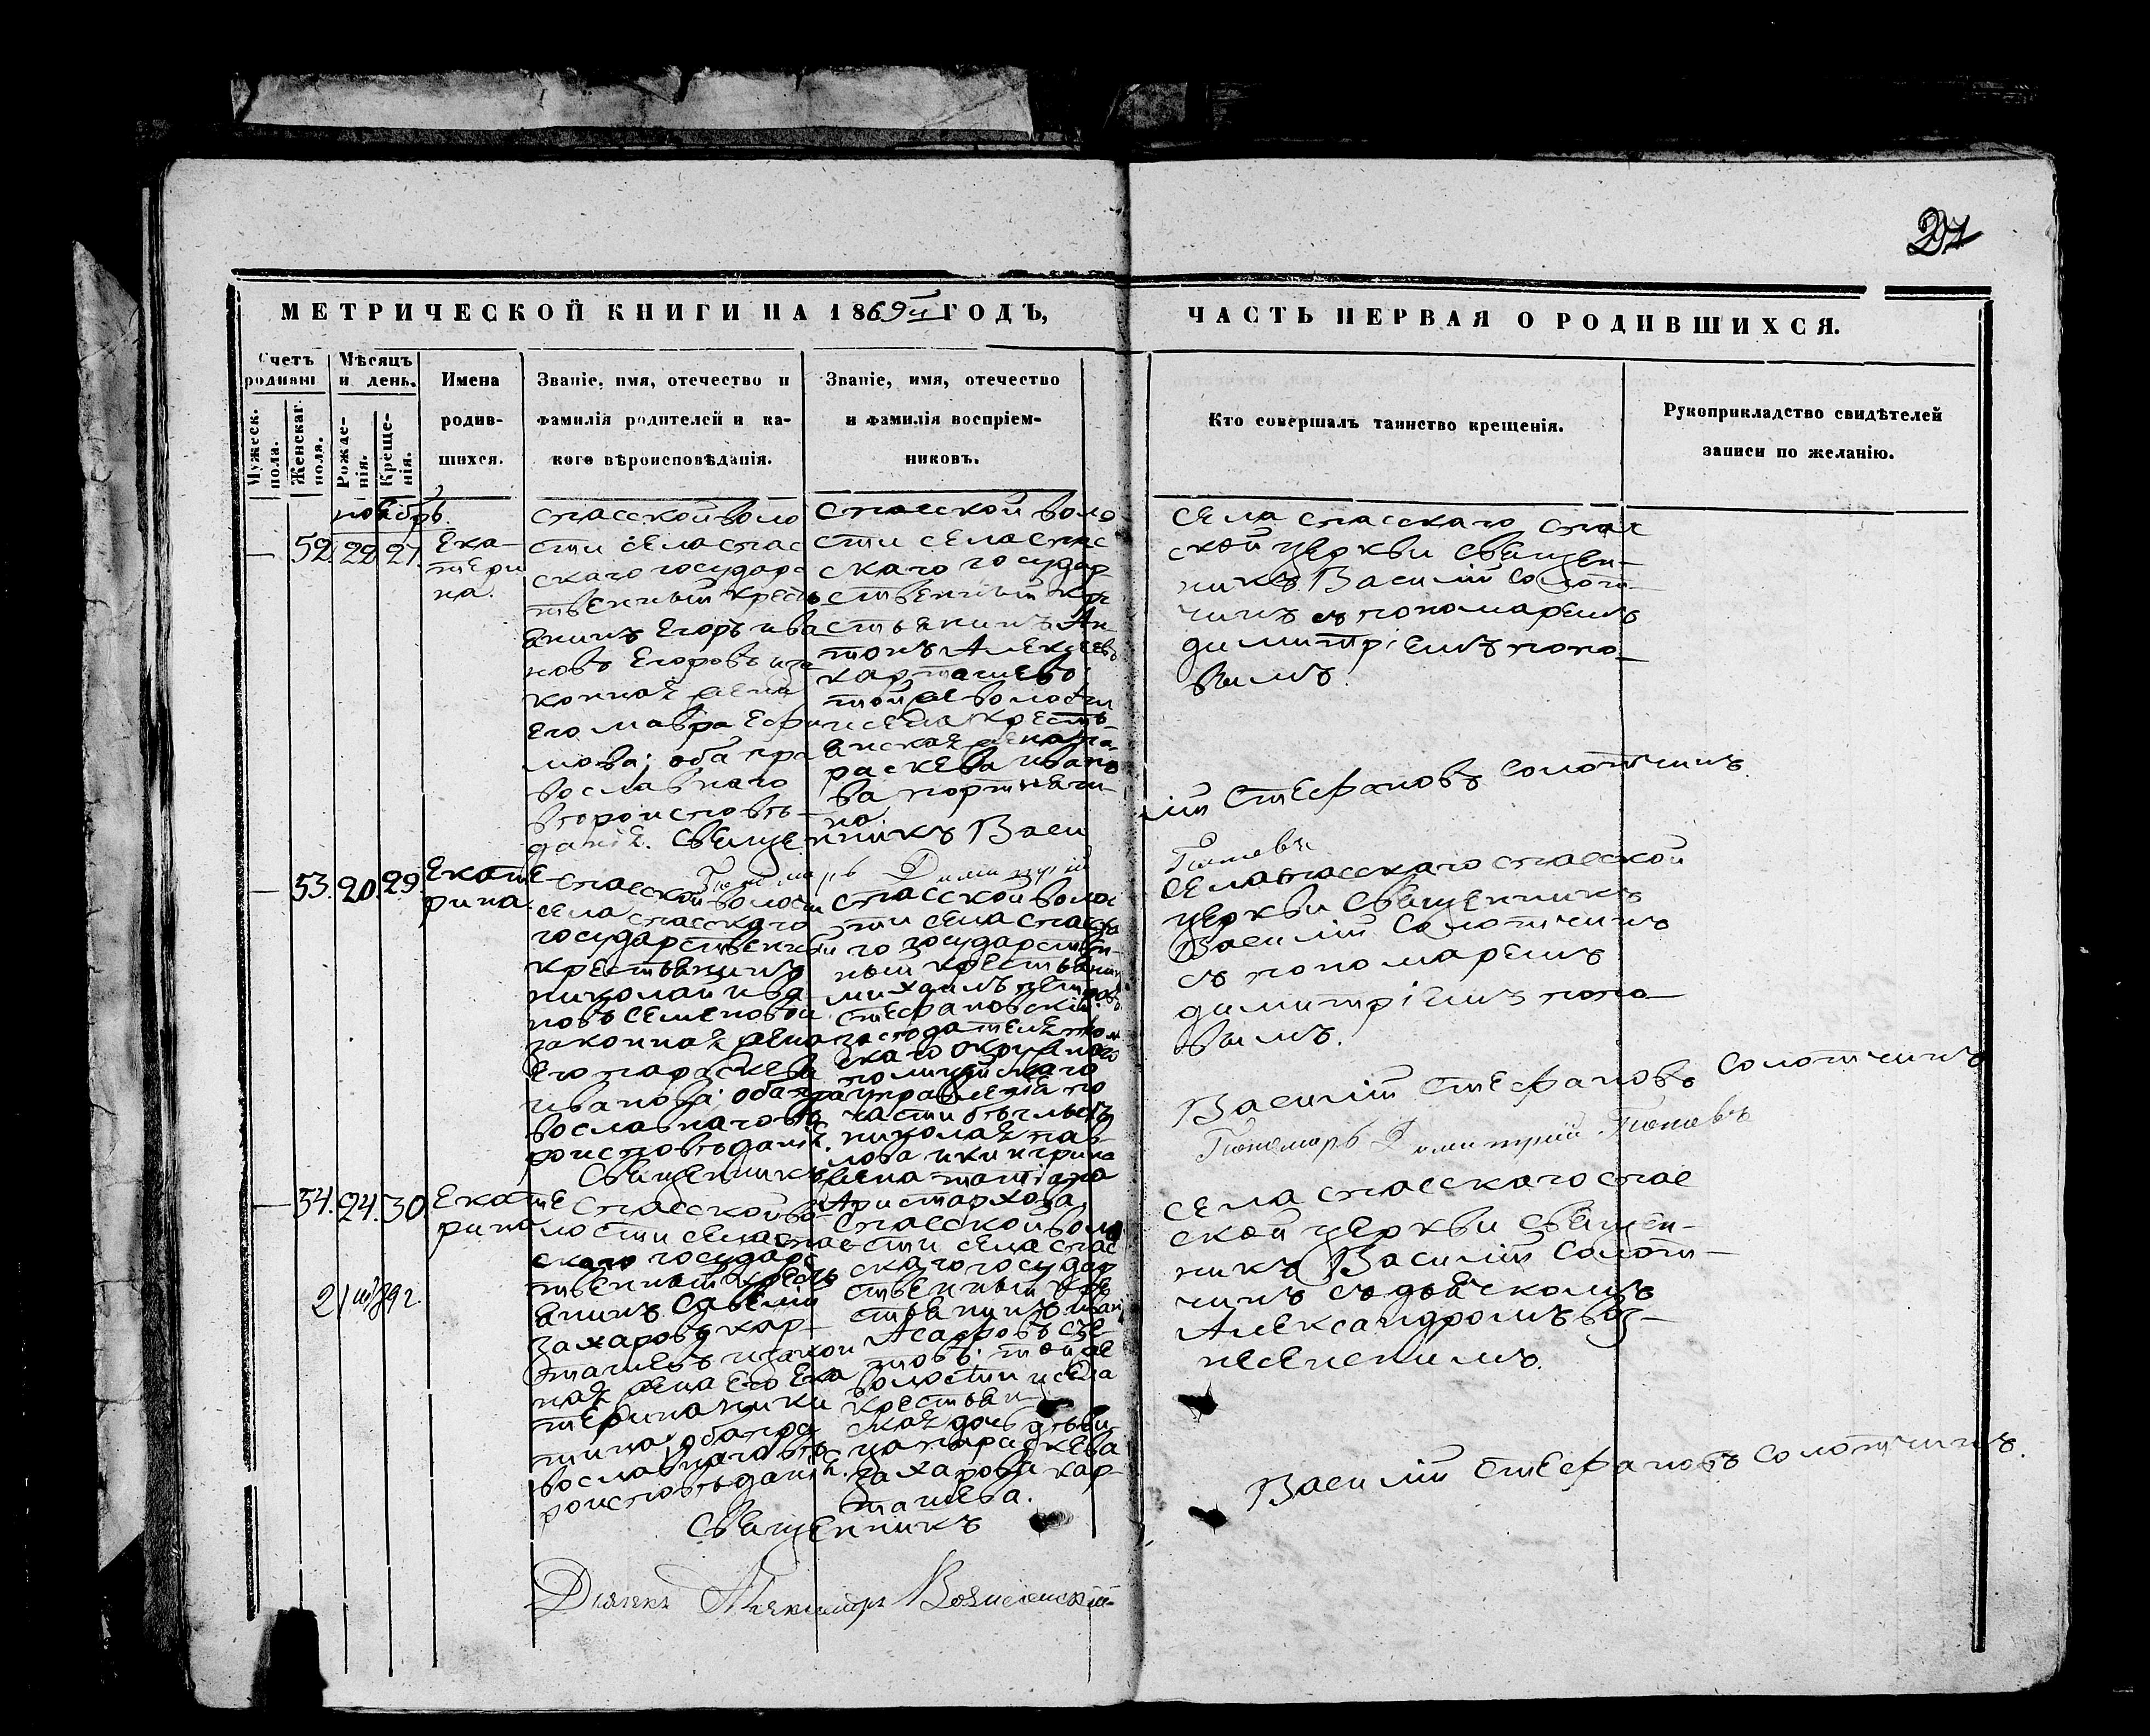 27
МЕТРИЧЕСКОЙ КНИГИ НА 1869й ГОДЪ,
ЧАСТЬ ПЕРВАЯ О РОДИВШИХСЯ.
Счетъ
Мѣсяцъ
и день.
Мужеск. пола.
Женскаг. пола.
Рожде-
нія.
Креще-
нія.
Имена
родив-
шихся.
Званіе, имя, отечество и
фамилія родителей и ка-
кого вѣроисповѣданія.
Званіе, имя, отечество
и фамилія воспріем-
никовъ.
Кто совершалъ таинство крещенія.
Рукоприкладство свидѣтелей
записи по желанію.
ноябрь.
52. 22 27.
Ека-
тери
на.
спасской воло
сти села спас
скаго государс
твенный кресть
янинъ Егоръ ива
новъ Егоровъ и за
конная жена
его мавра Ефи
мова; оба пра
вославнаго
вѣроисповѣ-
данія. Священникъ Васи
спасской воло
сти села спас
скаго государ
ственный кре
стьянинъ Ан
тонъ Алексеевъ
карташевъ:
той же волости
и села кресть
янская жена па-
раскева ивано
ва портнягы-
на.
села спасскаго спас
ской церкви священ-
никъ Василій Солот-
чинъ съ пономаремъ
димитріемъ попо-
вымъ.
лій Стефановъ солотчинъ.
Пономарь Димитрій
Поповъ
53. 20. 29.
Екате
рина.
спасской волости
села спасскаго
государственный
крестьянинъ
николай ива
новъ семеновъ и
законная жена
его параскева
иванова; оба пра
вославнаго вѣ
роисповѣданія.
Священникъ
спасской воло
сти села спасска
го государствен-
ный крестьянинъ
михаилъ петровъ
стефановскій:
скаго окружнаго
полицейскаго
управленія по
части
николая пав
лова
жена татіана
Аристархова
села спасскаго спасской
церкви священникъ
Василій Солотчинъ
съ пономаремъ
димитріемъ попо-
вымъ.
Василій Стефановъ Солотчинъ
Пономарь Димитрій Поповъ
54. 24. 30.
Екате
рина
2/VIII 89 г.
спасской во-
лости села спас
скаго государс
твенный кресть
янинъ Савелій
Захаровъ кар-
ташевъ и закон
ная жена его Ека
терина ники
тина; оба пра
вославнаго вѣ
роисповѣданія.
Спасской воло
сти села спас
скаго государ
ственный кре
стьянинъ
той же
волости и села
крестьян
ская дочь дѣви
ца параскева
захарова кар-
ташева.
Священникъ
села спасскаго спас
ской церкви священ-
никъ Василій Солот-
чинъ съ дьячкомъ
Александромъ воз-
несенскимъ.
Василій Стефановъ солотчинъ.
Дьячекъ Александръ Вознесенскій